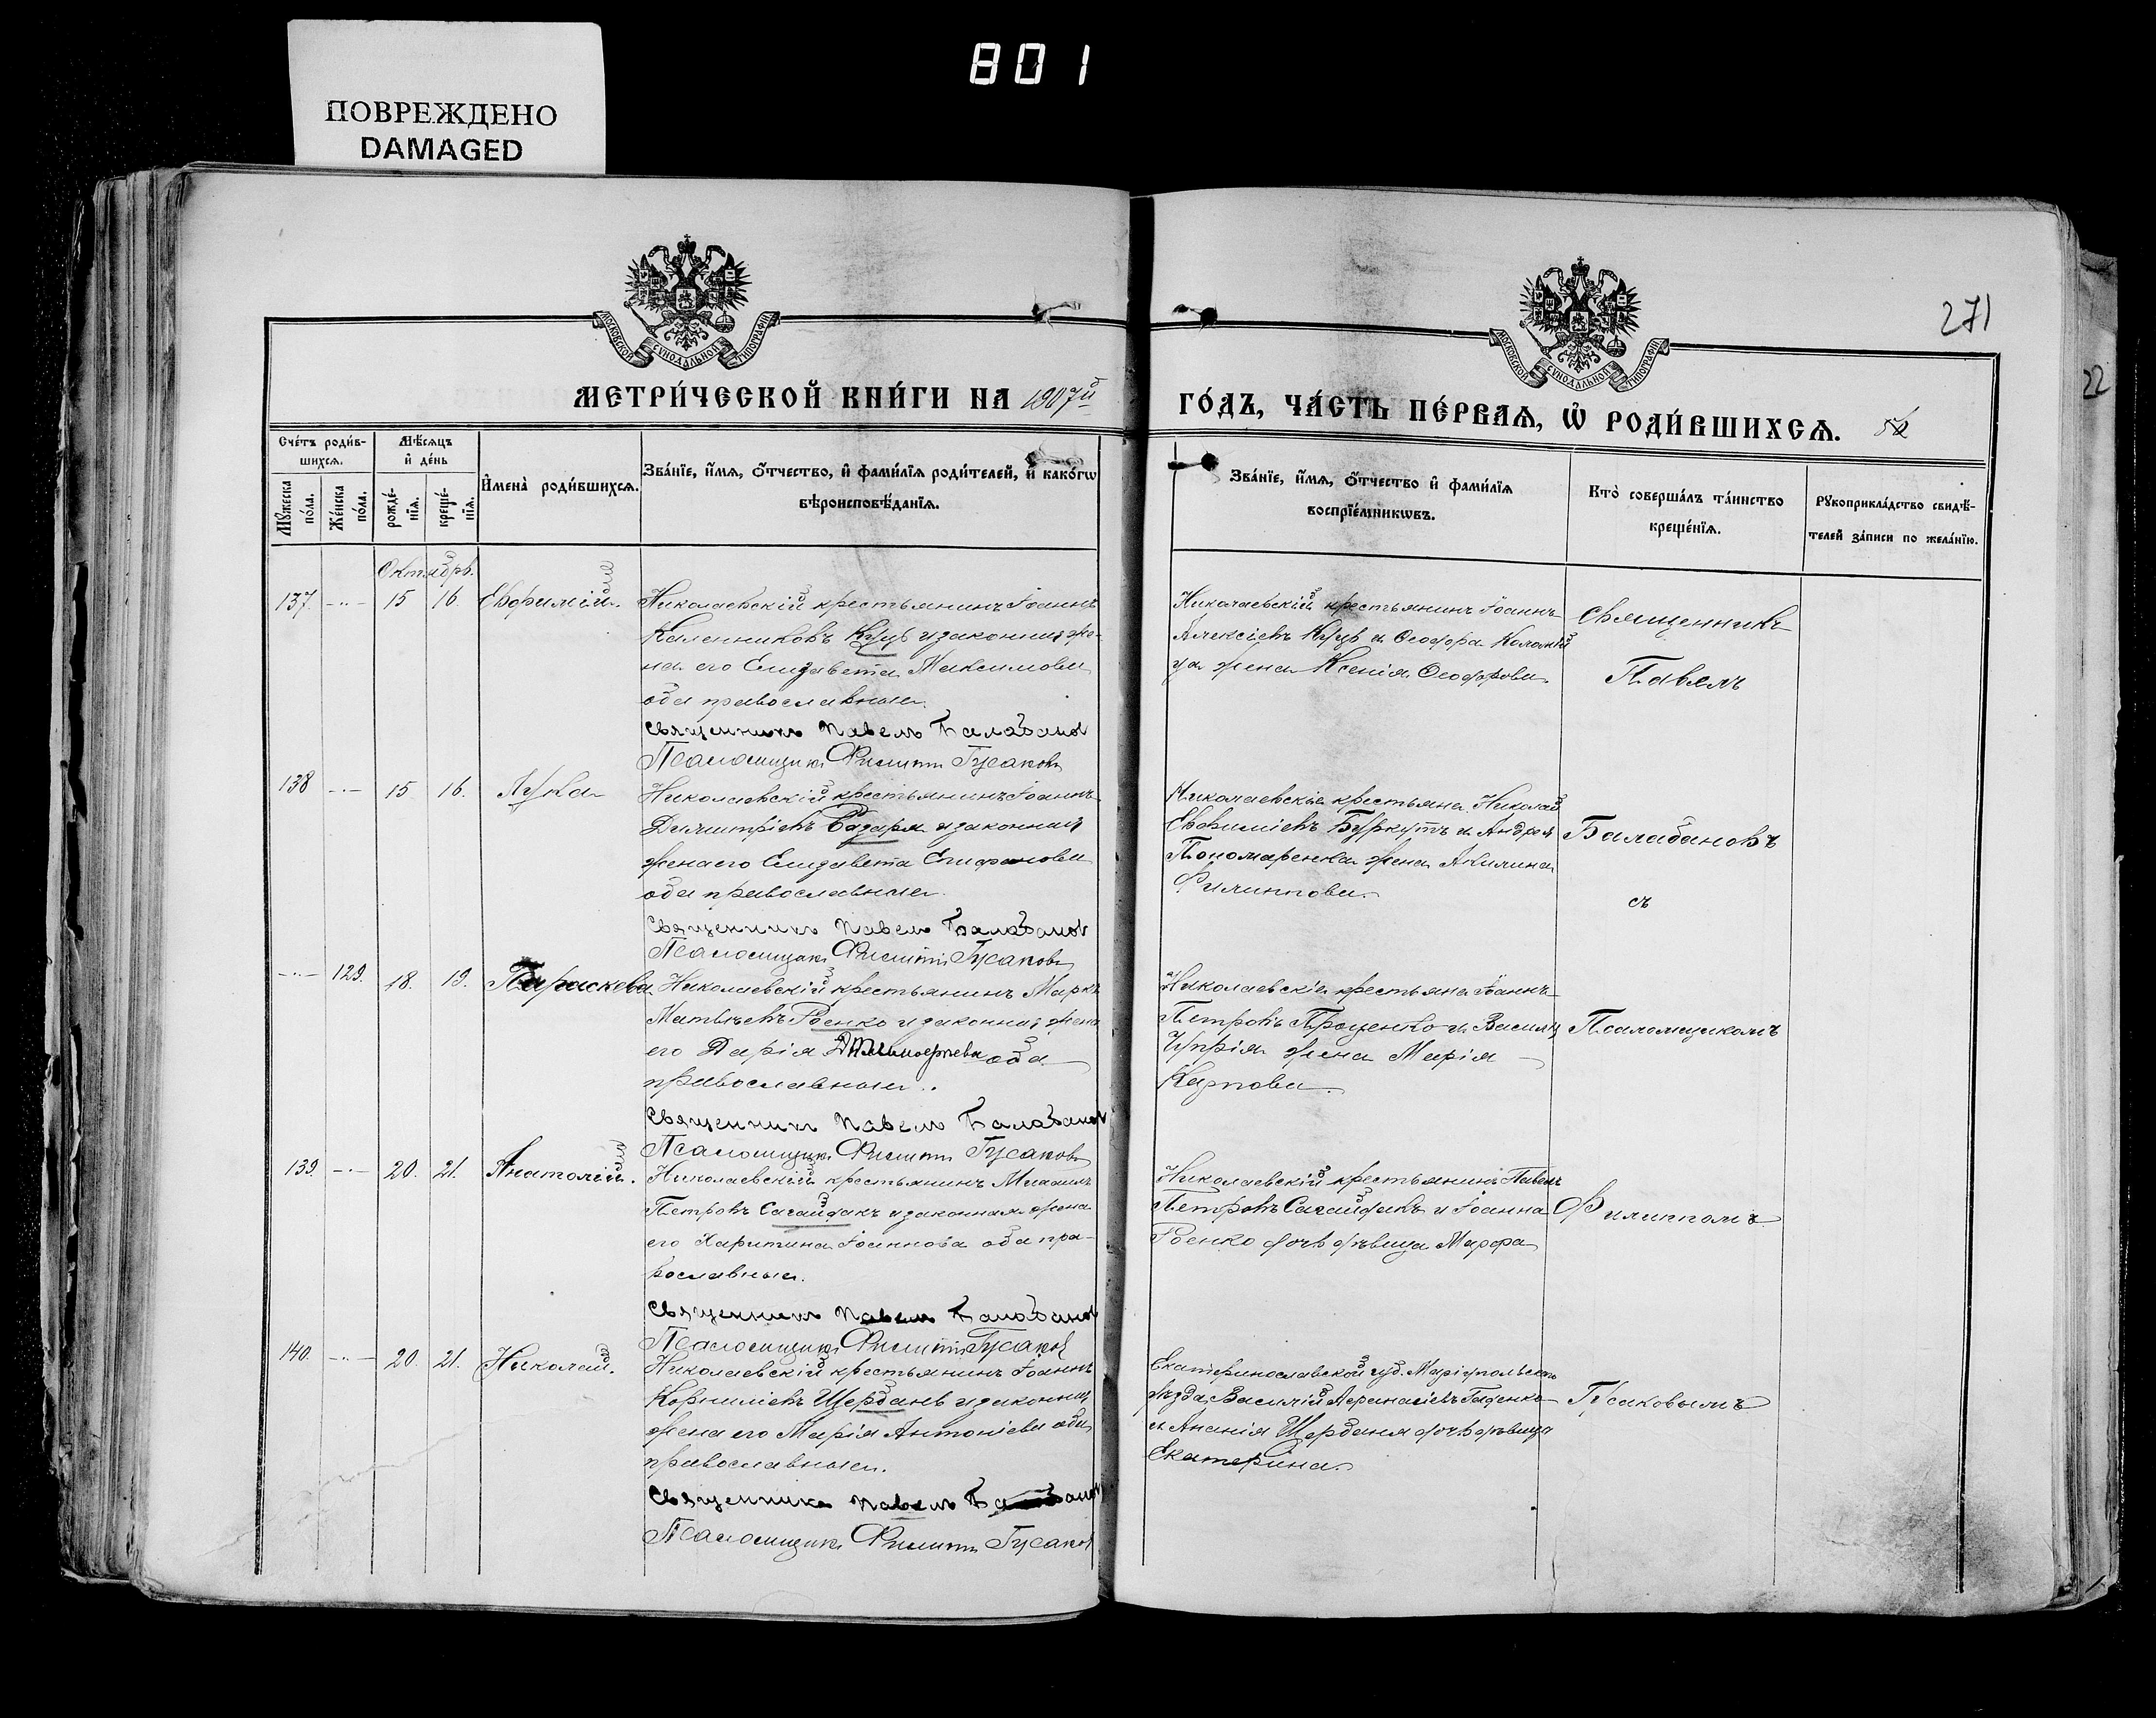 801
ПОВРЕЖДЕНО
DAMAGED
271
22
МОСКОВСКОЙ СѴНОДАЛЬНОЙ ТИПОГРАФІИ
МОСКОВСКОЙ СѴНОДАЛЬНОЙ ТИПОГРАФІИ
МЕТРИ́ЧЕСКОЙ КНИ́ГИ НА 1907й
ГО́ДЪ, ЧА́СТЬ ПЕ́РВАЯ, Ѡ҆ РОДИ́ВШИХСЯ.
Сче́тъ роди́в-
шихся.
Мѣ́сяцъ
и҆ де́нь
Мꙋ́жеска
по́ла.
Же́нска
по́ла.
рожде́-
нїя.
креще́-
нїя.
И҆мена̀ роди́вшихся.
Зва́нїе, и҆́мя, ѻ҆́тчество, и҆ фами́лїя роди́телей, и҆ како́гѡ
вѣроисповѣ́данїя.
Зва́нїе, и҆́мя, ѻ҆́тчество и҆ фами́лїя
воспрїе́мникѡвъ.
Кто̀ соверша́лъ та́инство
креще́нїя.
Рꙋкоприкла́дство свидѣ́-
телей за́писи по жела́нїю.
Октябрь.
137. -"- 15 16. Евфимій.
Николаевскій крестьянинъ Іоаннъ
Куцъ и законная же-
на его Елизавета Максимова
оба православные.
Священникъ Павелъ Балабанов
Псаломщикъ Филиппъ Гусаковъ
Николаевскій крестьянинъ Іоаннъ
Алексіевъ Куцъ и Ѳеодора Коломій
ца жена Ксенія Ѳеодорова.
Священникъ
Павелъ
138 -"- 15 16. Лука
Николаевскій крестьянинъ Іоаннъ
Димитріевъ и законная
жена его Елизавета Епифанова
оба православные.
Священникъ Павелъ Балабанов
Псаломщикъ Филиппъ Гусаковъ
Николаевскіе крестьяне Николай
Евфиміевъ Буркутъ и Андрея
Пономаренка жена Акилина
Филиппова.
Балабановъ
съ
-"- 129. 18. 19. Параскева
Николаевскій крестьянинъ Маркъ
Матвѣевъ Роенко и законная жена
его Дарія оба
православные.
Священникъ Павелъ Балабанов
Псаломщикъ Филиппъ Гусаковъ
Николаевскіе крестьяне Іоаннъ
Петровъ Проценко и Василія
Чупрія жена Марія
Карпова.
Псаломщикомъ
139. -"- 20. 21. Анатолій.
Николаевскій крестьянинъ Михаилъ
Петровъ Сагайдакъ и законная жена
его Харитина Іоаннова оба пра-
вославные.
Священникъ Павелъ Балабанов
Псаломщикъ Филиппъ Гусаков
Николаевскій крестьянинъ Павелъ
Петровъ Сагайдакъ и Іоанна
Роенко дочь дѣвица Марфа
Филиппомъ
140. -"- 20. 21. Николай.
Николаевскій крестьянинъ Іоаннъ
Корниліевъ Щербань и законная
жена его Марія Антоніева оба
православные.
Священникъ Павелъ
Псаломщикъ Филиппъ Гусаков
Екатеринославской губ. Маріупольскаго
уѣзда Василій Аѳанасіевъ Гаденко
и Ананія Щербаня дочь дѣвица
Екатерина.
Гусаковымъ